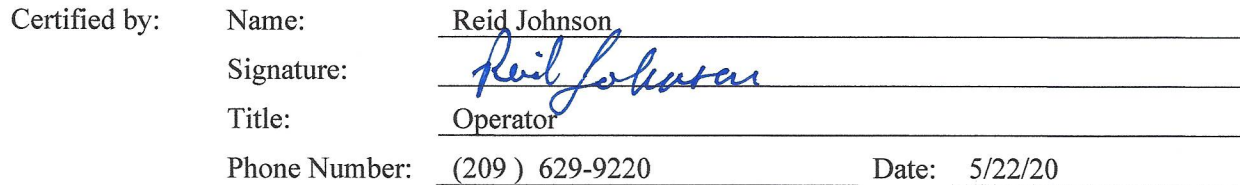 Certified by: Name: Reid Johnson
Signature: Reid Johnson
Title: Operator
Phone Number: (209 ) 629-9220 Date: 5/22/20